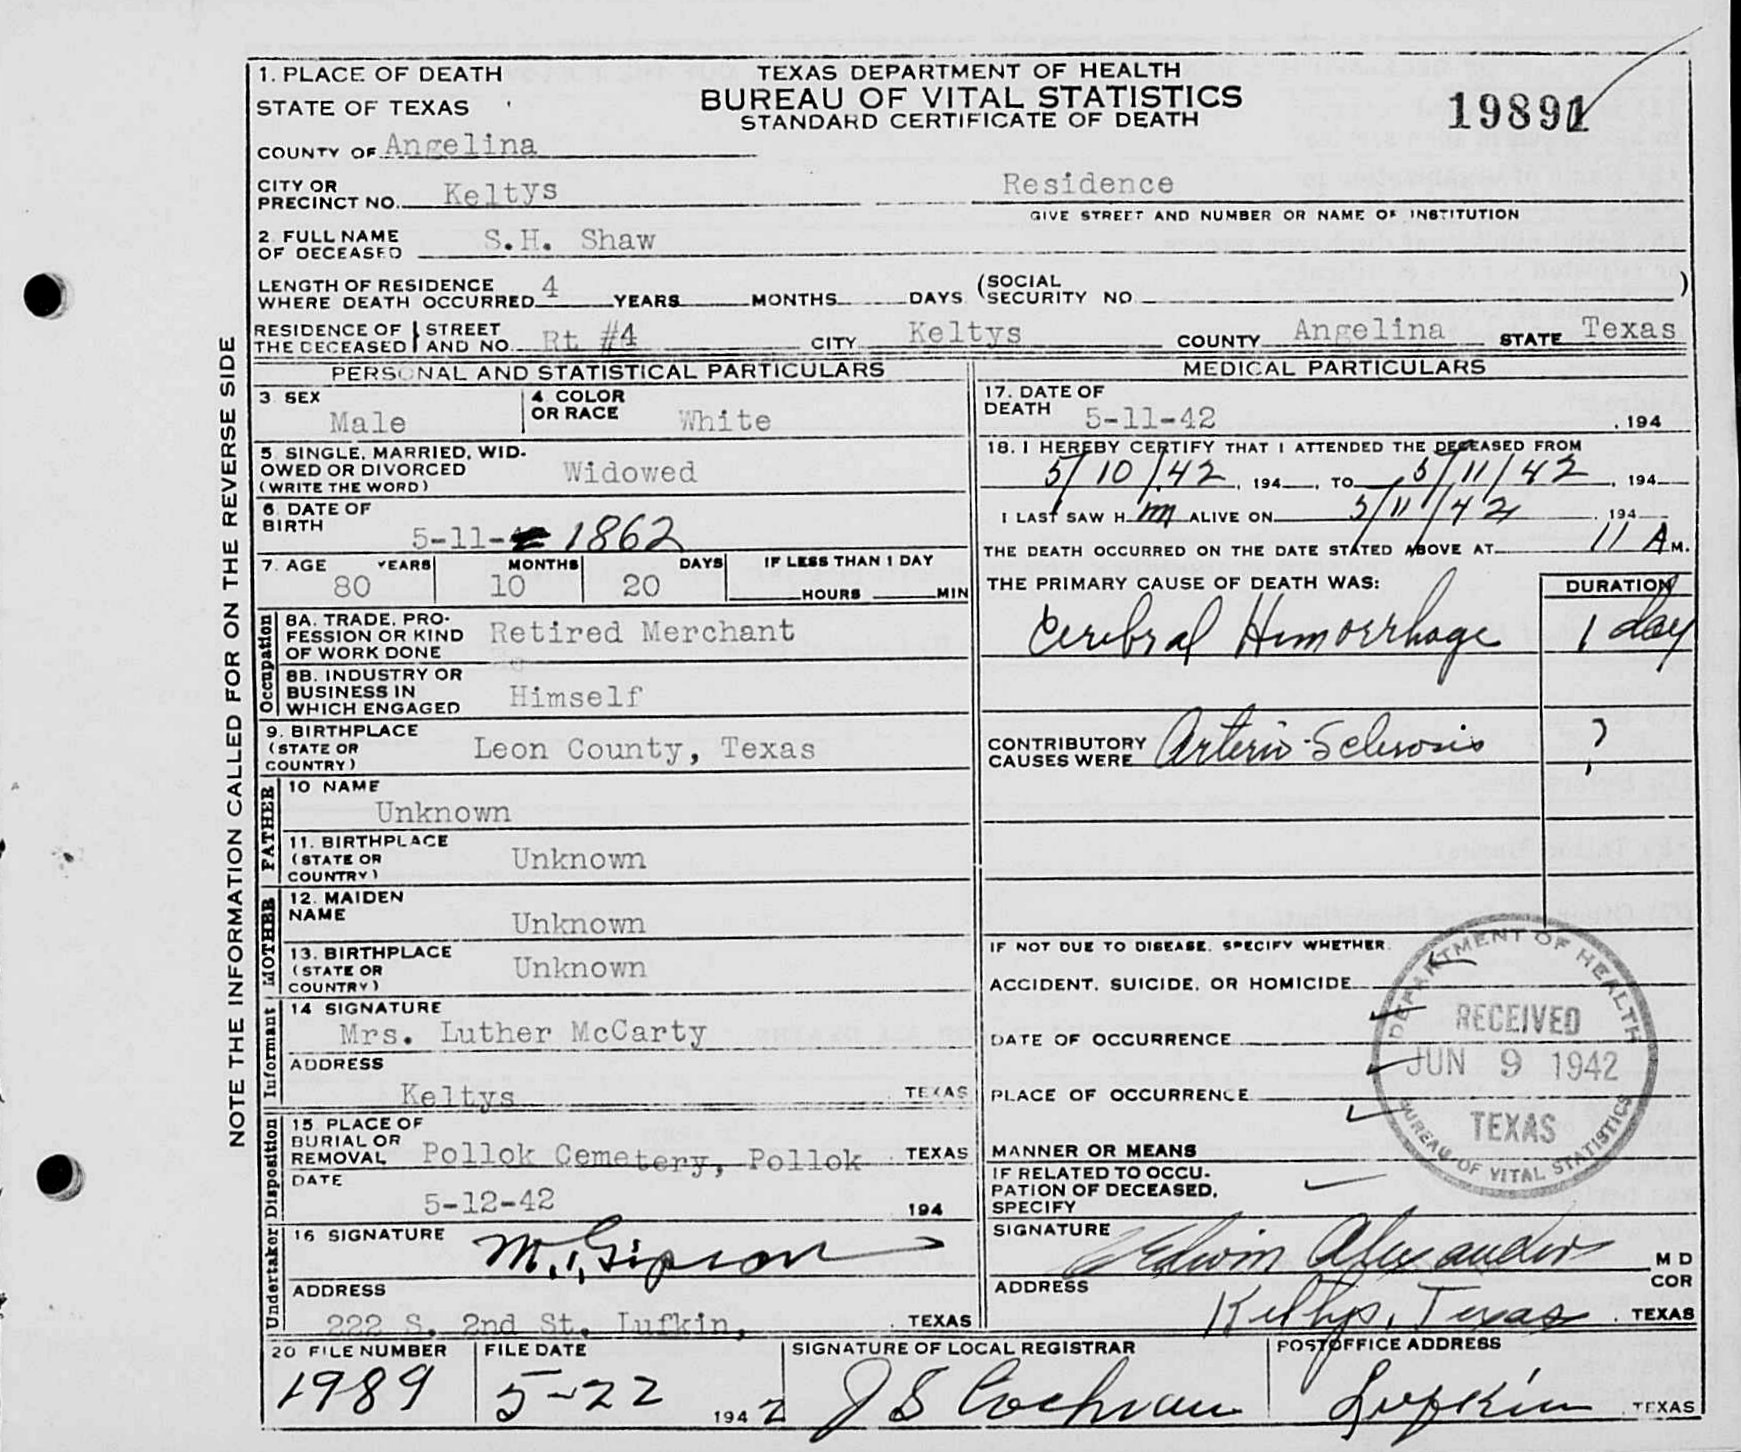 1. PLACE OF DEATH
STATE OF TEXAS
TEXAS DEPARTMENT OF HEALTH
BUREAU OF VITAL STATISTICS
STANDARD CERTIFICATE OF DEATH
19891
COUNTY OF Angelina
CITY OR PRECINCT NO. Keltys Residence
GIVE STREET AND NUMBER OR NAME OF INSTITUTION
2. FULL NAME OF DECEASED S.H. Shaw
LENGTH OF RESIDENCE WHERE DEATH OCCURRED 4 YEARS MONTHS DAYS (SOCIAL SECURITY NO )
RESIDENCE OF THE DECEASED STREET AND NO. Rt #4 CITY Keltys COUNTY Angelina STATE Texas
NOTE THE INFORMATION CALLED FOR ON THE REVERSE SIDE
PERSONAL AND STATISTICAL PARTICULARS
3 SEX Male
4. COLOR OR RACE White
5. SINGLE, MARRIED, WIDOWED OR DIVORCED (WRITE THE WORD) Widowed
6. DATE OF BIRTH 5-11- 1862
7. AGE YEARS 80 MONTHS 10 DAYS 20 IF LESS THAN 1 DAY HOURS MIN
Occupation
8A. TRADE, PROFESSION OR KIND OF WORK DONE Retired Merchant
8B. INDUSTRY OR BUSINESS IN WHICH ENGAGED Himself
9. BIRTHPLACE (STATE OR COUNTRY) Leon County, Texas
FATHER
10 NAME Unknown
11. BIRTHPLACE (STATE OR COUNTRY) Unknown
MOTHER
12. MAIDEN NAME Unknown
13. BIRTHPLACE (STATE OR COUNTRY) Unknown
Informant
14 SIGNATURE Mrs. Luther McCarty
ADDRESS Keltys TEXAS
Disposition
15. PLACE OF BURIAL OR REMOVAL Pollok Cemetery, Pollok TEXAS
DATE 5-12-42 194
Undertaker
16 SIGNATURE M. I. Gipson
ADDRESS 222 S. 2nd St. Lufkin, TEXAS
MEDICAL PARTICULARS
17. DATE OF DEATH 5-11-42 , 194
18. I HEREBY CERTIFY THAT I ATTENDED THE DECEASED FROM
5/10/42, 194 , TO 5/11/42, 194
I LAST SAW H im ALIVE ON 5/11/42 194
THE DEATH OCCURRED ON THE DATE STATED ABOVE AT 11 A M.
THE PRIMARY CAUSE OF DEATH WAS: DURATION
Cerebral Hemorrhage 1 day
CONTRIBUTORY CAUSES WERE Arterio-Sclerosis ?
IF NOT DUE TO DISEASE, SPECIFY WHETHER
ACCIDENT, SUICIDE, OR HOMICIDE
DATE OF OCCURRENCE
PLACE OF OCCURRENCE
MANNER OR MEANS
IF RELATED TO OCCUPATION OF DECEASED, SPECIFY
DEPARTMENT OF HEALTH
RECEIVED
JUN 9 1942
TEXAS
BUREAU OF VITAL STATISTICS
SIGNATURE Edwin Alexander M D
COR
ADDRESS Keltys, Texas , TEXAS
20 FILE NUMBER 1989
FILE DATE 5-22 1942
SIGNATURE OF LOCAL REGISTRAR J S Cochran
POSTOFFICE ADDRESS Lufkin, TEXAS